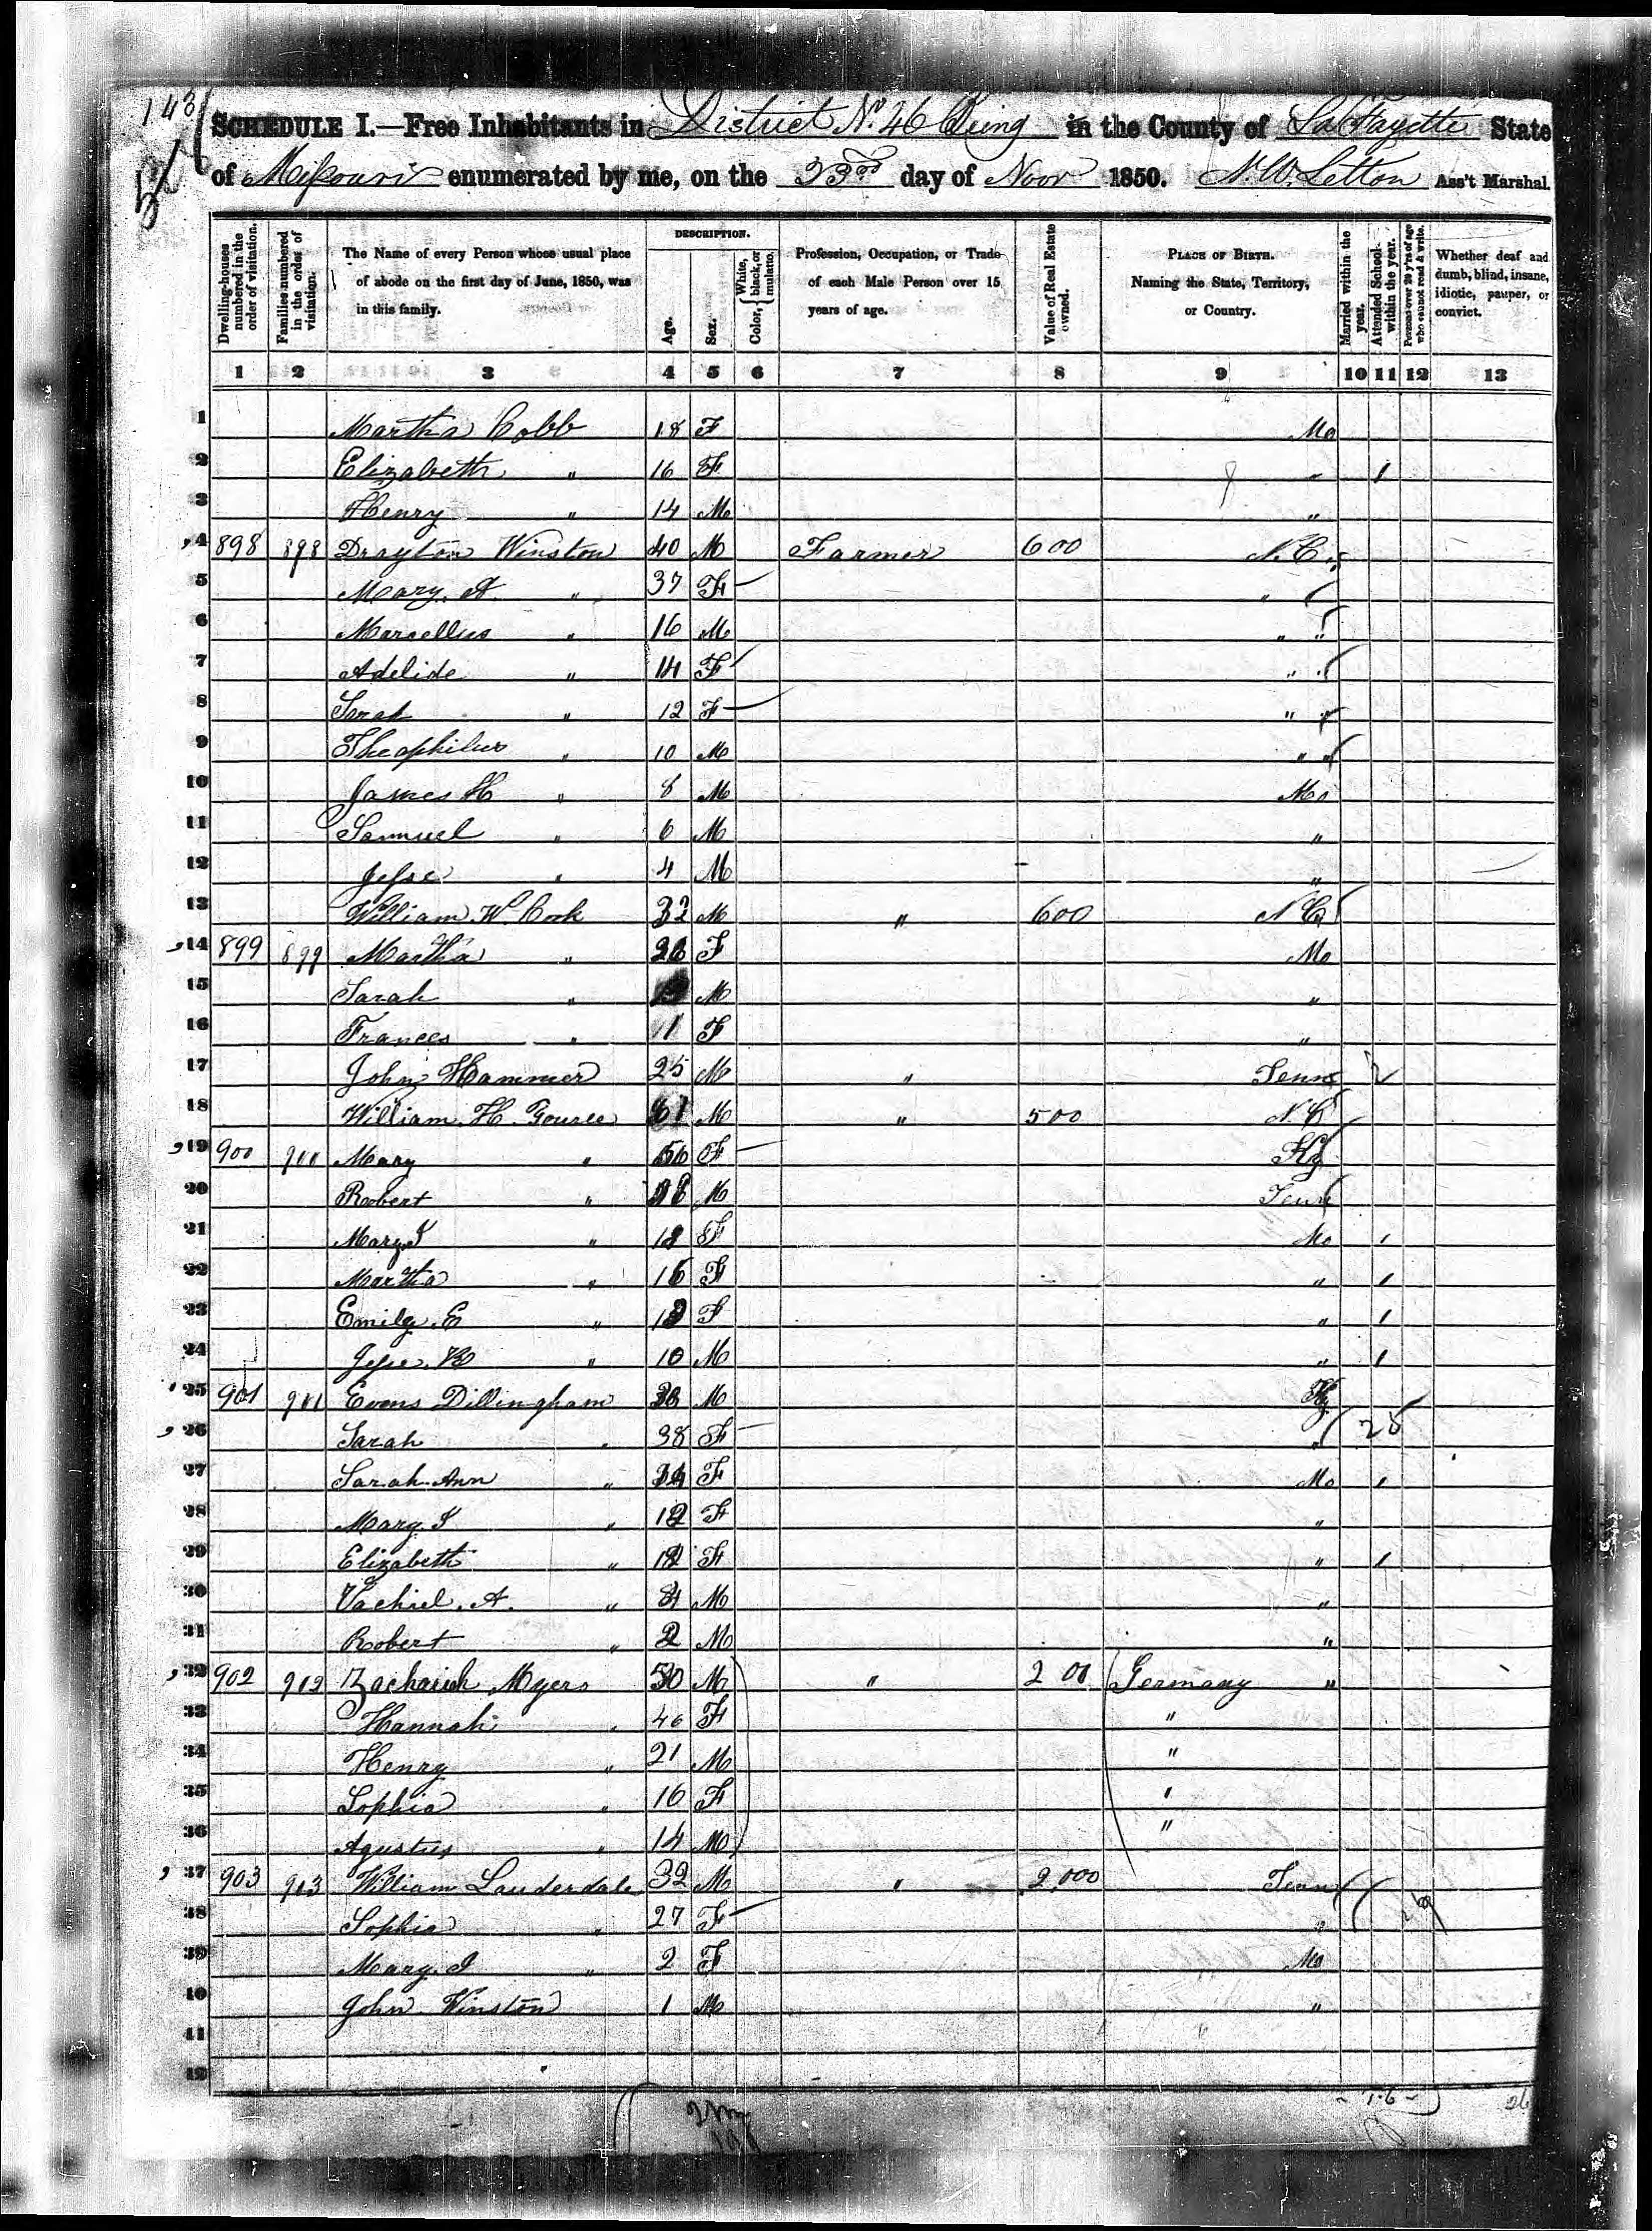 143
SCHEDULE I.—Free Inhabitants in District No. 46 Being in the County of LaFayette State
of Missouri enumerated by me, on the 23rd day of Novr 1850. N. W. Letton Ass't Marshal.
Dwelling-houses numbered in the order of visitation.
Families numbered in the order of visitation.
The Name of every Person whose usual place of abode on the first day of June, 1850, was in this family.
DESCRIPTION.
Age.
Sex.
Color, { White, black, or mulatto.
Profession, Occupation, or Trade of each Male Person over 15 years of age.
Value of Real Estate owned.
PLACE OF BIRTH. Naming the State, Territory, or Country.
Married within the year.
Attended School within the year.
Persons over 20 y'rs of age who cannot read & write.
Whether deaf and dumb, blind, insane, idiotic, pauper, or convict.
1 2 3 4 5 6 7 8 9 10 11 12 13
1 Martha Cobb 18 F Mo
2 Elizabeth " 16 F " 1
3 Henry " 14 M "
4 898 898 Drayton Winston 40 M Farmer 600 N.C.
5 Mary A " 37 F "
6 Marcellus " 16 M " "
7 Adelide " 14 F " "
8 Sarah " 12 F " "
9 Theophilus " 10 M " "
10 James H " 8 M Mo
11 Samuel " 6 M "
12 Jesse " 4 M "
13 William W. Cook 32 M " 600 N C
14 899 899 Martha " 26 F Mo
15 Sarah " M "
16 Frances " 1 F "
17 John Hammer 25 M " Tenn
18 William H. Gouree 61 M " 500 N.C
19 900 900 Mary " 56 F Ky
20 Robert " M Tenn
21 Mary J " 18 F Mo 1
22 Martha " 16 F " 1
23 Emily. E " F " 1
24 Jesse. " 10 M " 1
25 901 901 Evans Dillingham M Ky
26 Sarah " 38 F " 25
27 Sarah Ann " F Mo 1
28 Mary J " 12 F "
29 Elizabeth " F " 1
30 Vachiel. A. " M "
31 Robert " 2 M "
32 902 902 Zachariah Myers 50 M " 200 Germany "
33 Hannah " 46 F "
34 Henry " 21 M "
35 Sophia " 16 F "
36 Agustus " 14 M "
37 903 903 William Lauderdale 32 M " 2,000 Tenn
38 Sophia " 27 F "
39 Mary. J " 2 F Mo
40 John Winston 1 M "
41
42
26